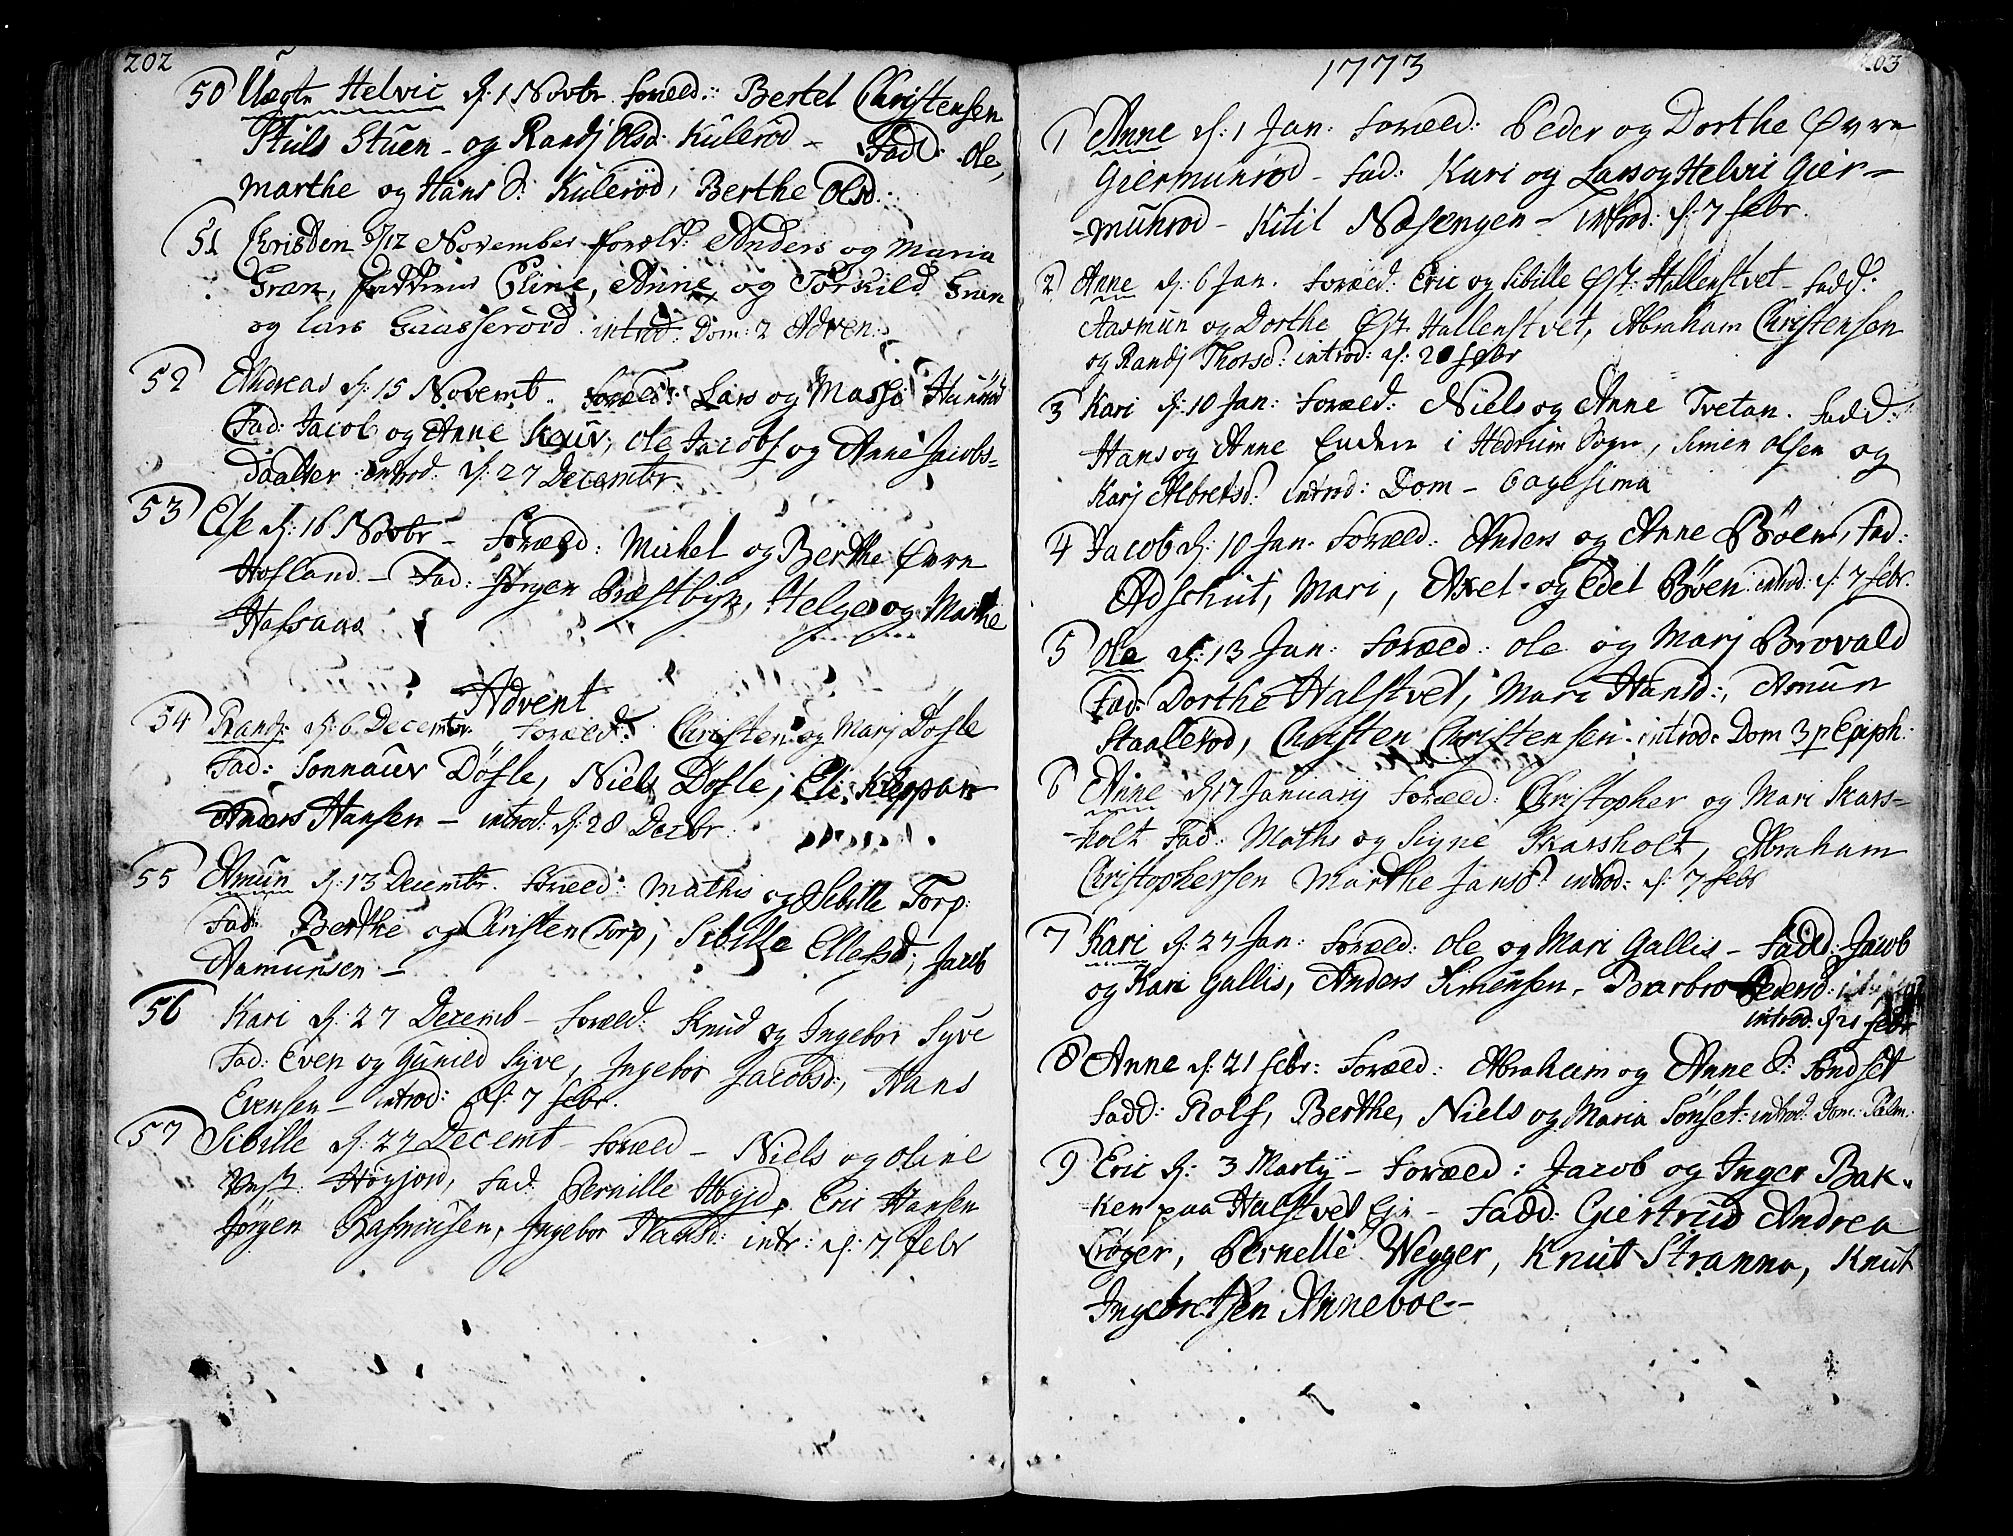 202
50 Uægte Helvic d: 1 Novbr Foræld: Bertel Christensen
Stuls Stuen - og Randj Olsd: Kulerød - Fadd: Ole,
Marthe og Hans S: Kulerød, Berthe Olsd:
51 Christen d/12 November foræld: Anders og Maria
Gran, Eline, Anne og Torkild Gran
og Lars Gaasserøed introd: Dom: 2 Adven:
52 Andreas d: 15 Novemt. Foræld: Lars og Masse Hunsrød
Fad: Jacob og Anne Kauv, Ole Jacobs og Anne Jacobs-
Daatter introd: d: 27 Decembr.
53 Else d: 16 Novbr - Foræld: Mickel og Berthe Øvre
Hofland - Fad: Jørgen Præstbye, Helge og Marthe
Hafsaas
Advent
54 Randj d: 6 Decembr. Foræld: Christen og Marj Døfle
Fad: Sonnauv Døfle, Niels Døfle, Eli Kleppan
Anders Hansen - introd: d: 28 Decbr.
55 Amun d: 13 Decembr. Foræld: Mathis og Sibille Torp:
Fad: Berthe og Christen Torp, Sibille Ellefsd:, Jacob
Aamunsen -
56 Kari d: 27 Decemb - Foræld: Knud og Ingebor Syve
Fad: Even og Gunild Syve, Ingebor Jacobsd:, Hans
Evensen - introd: d: 7 febr.
57 Sibille d: 27 Decemt - Foræld - Niels og Oline
Vest: Høyjord, Fad: Pernille Høyjd, Eric Hansen
Jørgen Rasmusen, Ingebor Hansd: intr: d: 7 febr
1773
203
1 Anne d: 1 Jan: Foræld: Peder og Dorthe Øvre
Giermunrød - Fad: Kari og Lars og Helvic Gier-
-munrød - Kitil Næsengen - introd: d: 7 febr.
2 Anne d: 6 Jan. Foræld: Eric og Sibille Øst: Hallenstvet - Fadd:
Aasmun og Dorthe Øst Hallenstvet, Abraham Christensen
og Randj Thorsd: introd: d: 20 febr
3 Kari d: 10 Jan: Foræld: Niels og Anne Tvetan. Fadd:
Hans og Anne i Hedrum Sogn, Simen Olsen og
Karj Albretsd: introd: Dom - 6agesima
4 Jacob d: 10 Jan. Foræld: Anders og Anne Bøen, Fad:
Ad Schiut, Mari, Axel og Edel Bøen introd: d: 7 febr.
5 Ole d: 13 Jan: Foræld: Ole og Marj Brovald
Fad: Dorthe Halstvet, Mari Hansd:, Amun
Staalerød, Christen Christensen - introd: Dom 3 p Epiph:
6 Anne d: 17 Januarij Foræld: Christopher og Mari Skars-
-holt Fad: Mathis og Signe Skarsholt, Abraham
Christophersen Marthe Jansd: introd: d: 7 febr
7 Kari d: 27 Jan: Foræld: Ole og Mari Gallis - Fadd: Jacob
og Kari Gallis, Anders Simensen, Barbro Pedersd:
introd: d: 21 febr
8 Anne d: 21 febr: Foræld: Abraham og Anne S: Søndset
Fadd: Rolf, Berthe, Niels og Maria Sønset introd: Dom: Palm:
9 Eric d: 3 Martij - Foræld: Jacob og Inger Bak-
ken paa Halstvet Eje - Fadd: Giertrud Andrea
Crøger, Pernelle Wegger, Knut Stranna, Knut
Ingebretsen Anneboe -